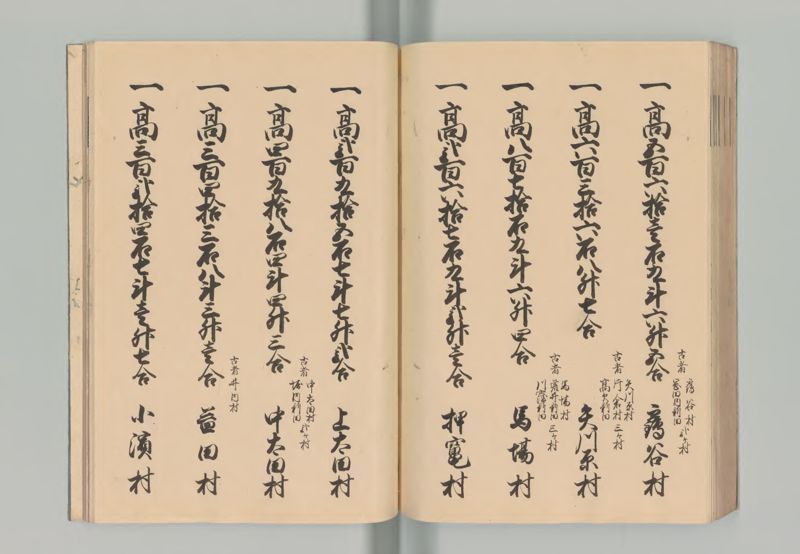 一高五百六拾壱石九斗六升五合
古者
鶴谷村
巻田内新田
弐ヶ村
鶴谷村
一高六百三拾六石八升七合
古者
矢川原村
片倉村
三ヶ村
矢川原村
一高八百七拾石九斗六升四合
古者
馬場村
三ヶ村
馬場村
一高弐百六拾七石九斗弐升壱合
押竃村
一高弐百九拾五石七斗七升弐合
上太田村
一高四百九拾八石四斗四升三合
古者
中太田村
堀内新田
弐ヶ村
中太田村
一高三百四拾三石八斗三升壱合
古者
井内村
益田村
一高三百弐拾四石七斗壱升七合
小濱村